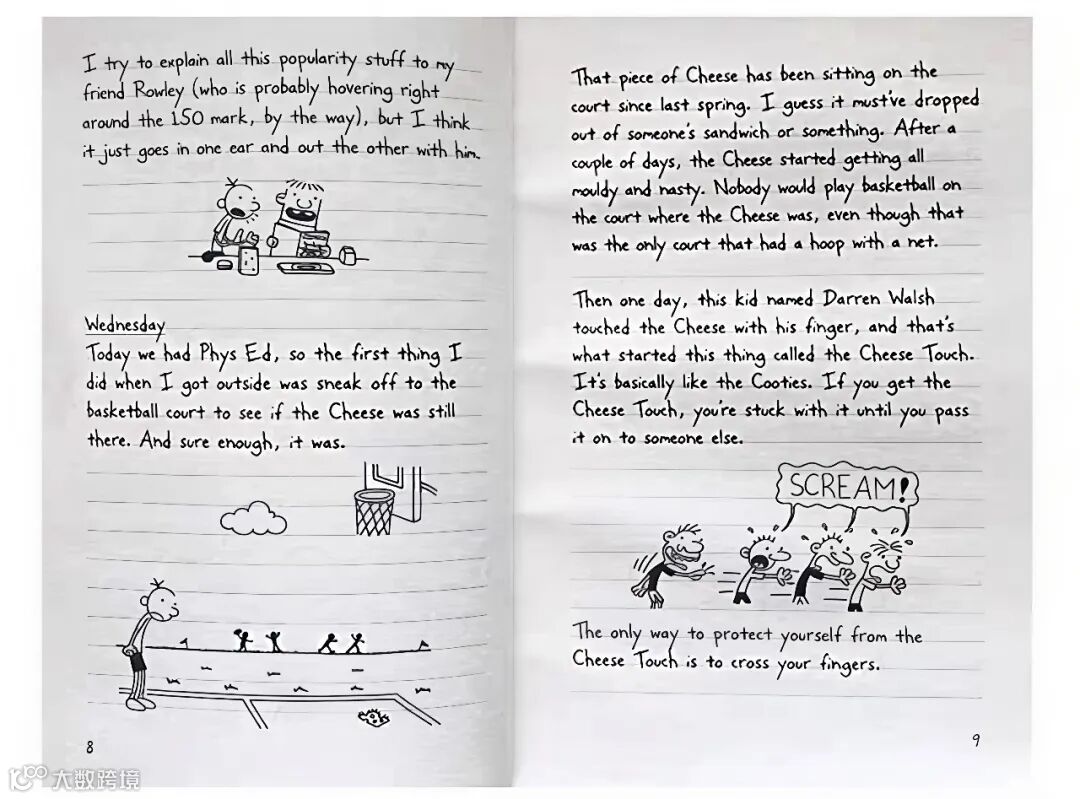 I try to explain all this popularity stuff to my
friend Rowley (who is probably hovering right
around the 150 mark, by the way), but I think
it just goes in one ear and out the other with him.
Wednesday
Today we had Phys Ed, so the first thing I
did when I got outside was sneak off to the
basketball court to see if the Cheese was still
there. And sure enough, it was.
8
That piece of Cheese has been sitting on the
court since last spring. I guess it must've dropped
out of someone's sandwich or something. After a
couple of days, the Cheese started getting all
mouldy and nasty. Nobody would play basketball on
the court where the Cheese was, even though that
was the only court that had a hoop with a net.
Then one day, this kid named Darren Walsh
touched the Cheese with his finger, and that's
what started this thing called the Cheese Touch.
It's basically like the Cooties. If you get the
Cheese Touch, you're stuck with it until you pass
it on to someone else.
SCREAM!
The only way to protect yourself from the
Cheese Touch is to cross your fingers.
9
大数跨境